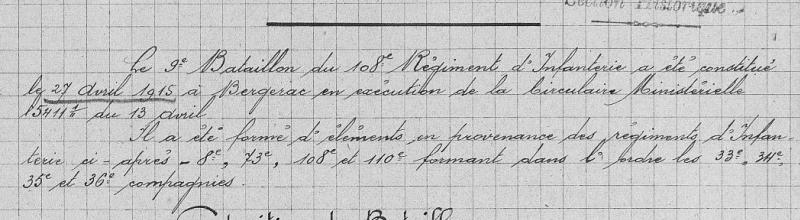 Section Historique
Le 9e Bataillon du 108e Régiment d'Infanterie a été constitué
le 27 Avril 1915 à Bergerac en exécution de la Circulaire Ministérielle
15411 1/11 du 13 avril
Il a été formé d'éléments en provenance des régiments d'Infan-
terie ci-après - 8e, 73e, 108e et 110e formant dans l'ordre les 33e, 34e,
35e et 36e compagnies.